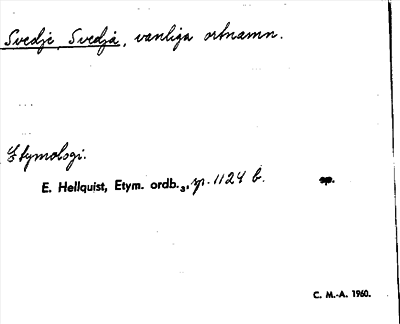 Svedje, Svedja, vanliga ortnamn.
Etymologi.
E. Hellquist, Etym. ordb.₃, sp. 1124 b. sp.
C. M.-A. 1960.